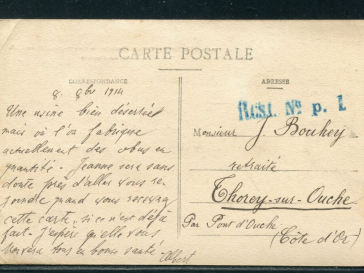 CARTE POSTALE
CORRESPONDANCE
8. 9bre 1914
Une usine bien désertée
mais où l'on fabrique
actuellement des obus en
quantité. Jeanne sera sans
doute près d'aller vous re-
joindre quand vous recevrez
cette carte, si ce n'est déjà
fait. J'espère qu'elle vous
trouvera tous en bonne santé.
Albert
ADRESSE
Rest. No p. 1
Monsieur J. Bouhey
retraité
Thorey-sur-Ouche
Par Pont d'Ouche
(Côte d'Or)